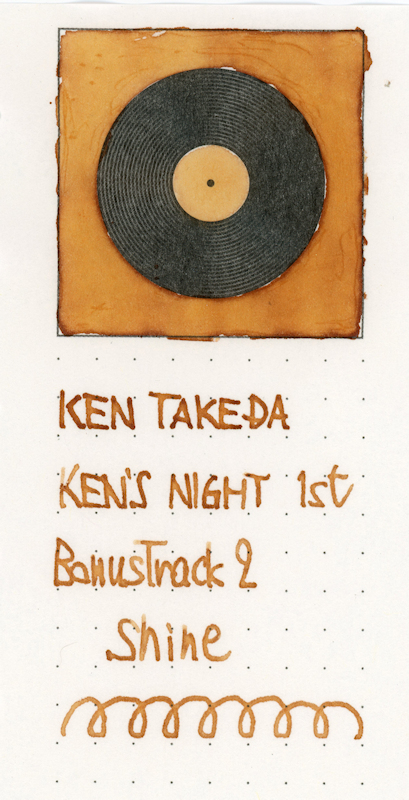 KEN TAKEDA
KEN'S NIGHT 1st
BonusTrack 2
Shine